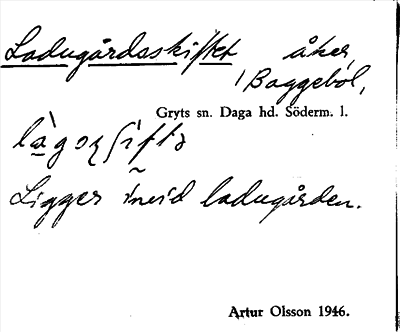 Ladugårdsskiftet åker,
i Baggeböl,
Gryts sn. Daga hd. Söderm. l.
Ligger invid ladugården.
Artur Olsson 1946.